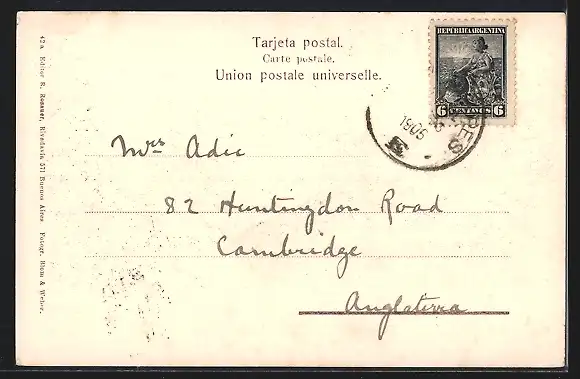 Tarjeta postal.
Carte postale.
Union postale universelle.
REPUBLICA ARGENTINA
6 CENTAVOS 6
1905
Mrs Adie
82 Huntingdon Road
Cambridge
Anglaterra
42a Editor R. Rosauer, Rivadavia 571 Buenos Aires Fotogr. Blum & Weber.